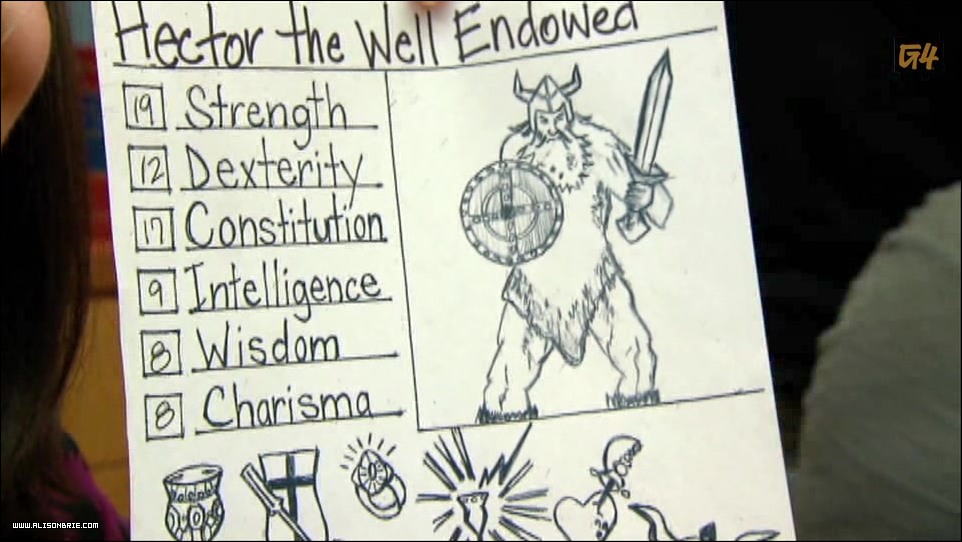 Hector the Well Endowed
G4
19 Strength
12 Dexterity
17 Constitution
9 Intelligence
8 Wisdom
8 Charisma
WWW.ALISONBRIE.COM